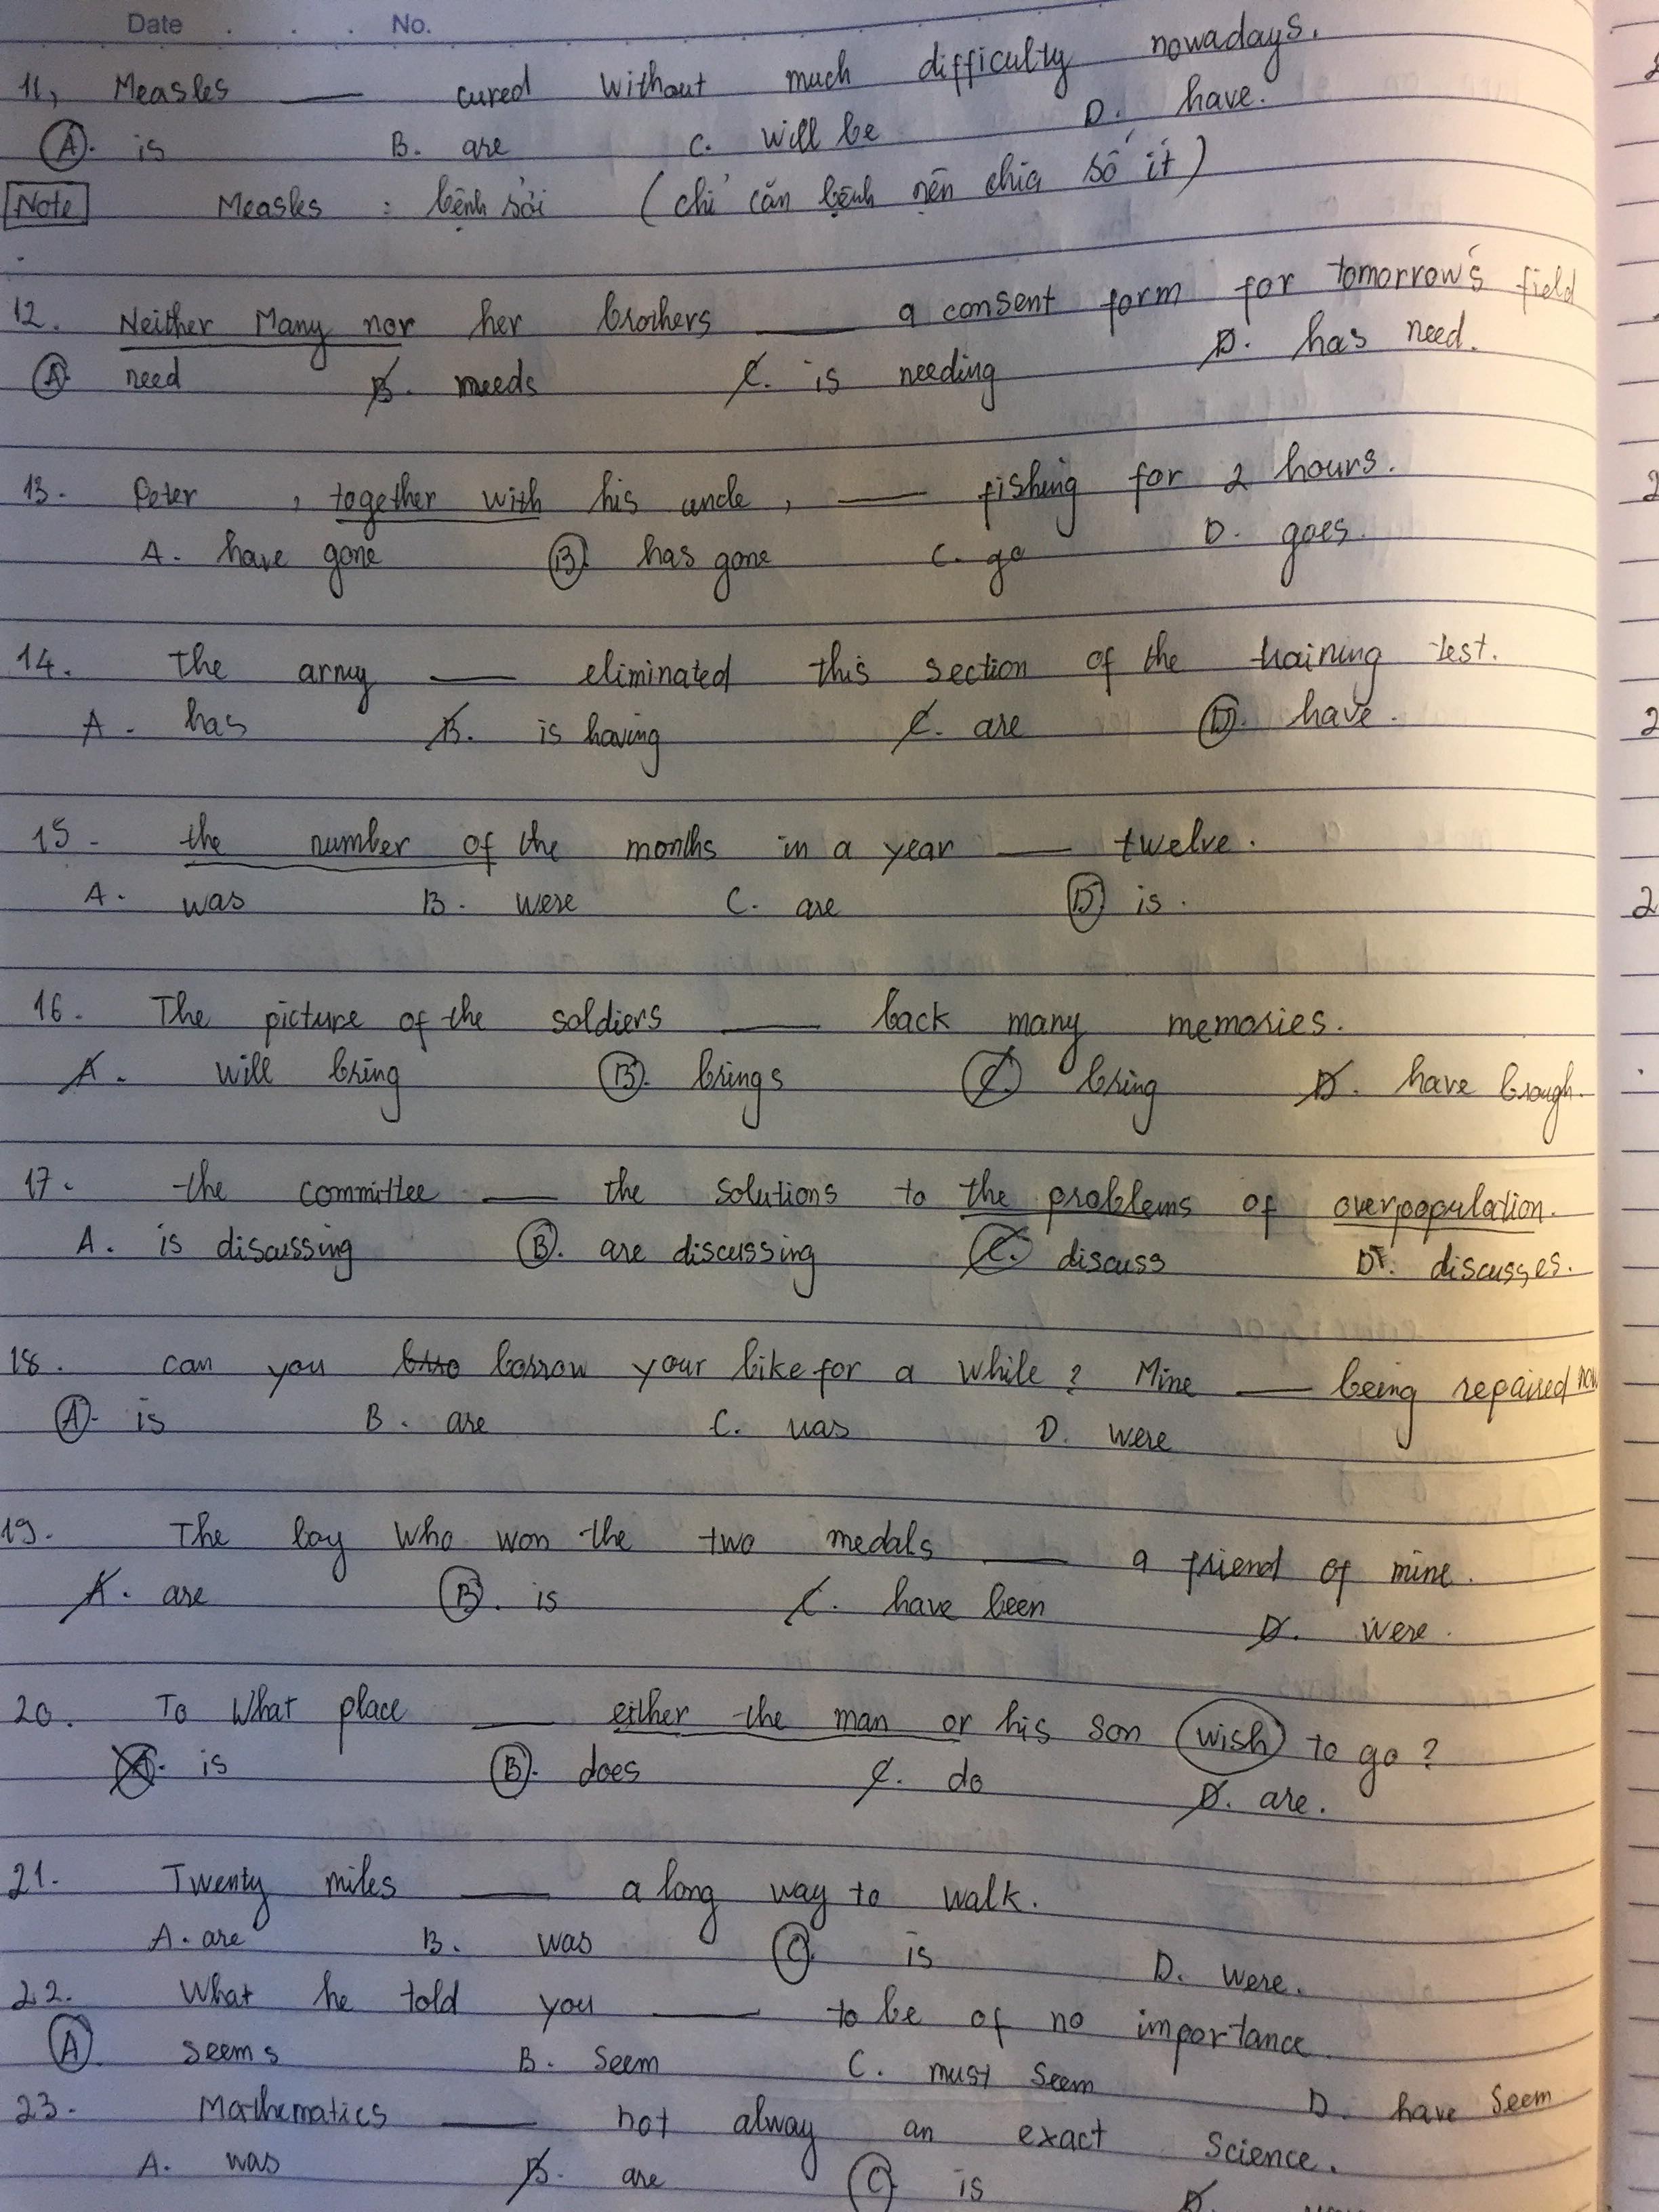 Date . . . No.
11, Measles ___ cured without much difficulty nowadays.
A. is B. are C. will be D. have.
Note Measles : bệnh sởi (chỉ căn bệnh nên chia số ít)
12. Neither Many nor her brothers ___ a consent form for tomorrow's field
A. need B. needs C. is needing D. has need.
13. Peter , together with his uncle , ___ fishing for 2 hours.
A. have gone B. has gone C. go D. goes.
14. the army ___ eliminated this section of the training test.
A. has B. is having C. are D. have.
15. the number of the months in a year ___ twelve.
A. was B. were C. are D. is.
16. The picture of the soldiers ___ back many memories.
A. will bring B. brings C. bring D. have brough.
17. the committee ___ the solutions to the problems of overpopulation.
A. is discussing B. are discussing C. discuss D. discusses.
18. can you borrow your bike for a while ? Mine ___ being repaired now
A. is B. are C. was D. were
19. The boy who won the two medals ___ a friend of mine.
A. are B. is C. have been D. were.
20. To What place ___ either the man or his son wish to go ?
A. is B. does C. do D. are.
21. Twenty miles ___ a long way to walk.
A. are B. was C. is D. were.
22. What he told you ___ to be of no importance.
A. seems B. Seem C. must Seem D. have Seem
23. Mathematics ___ not alway an exact Science.
A. was B. are C. is D.